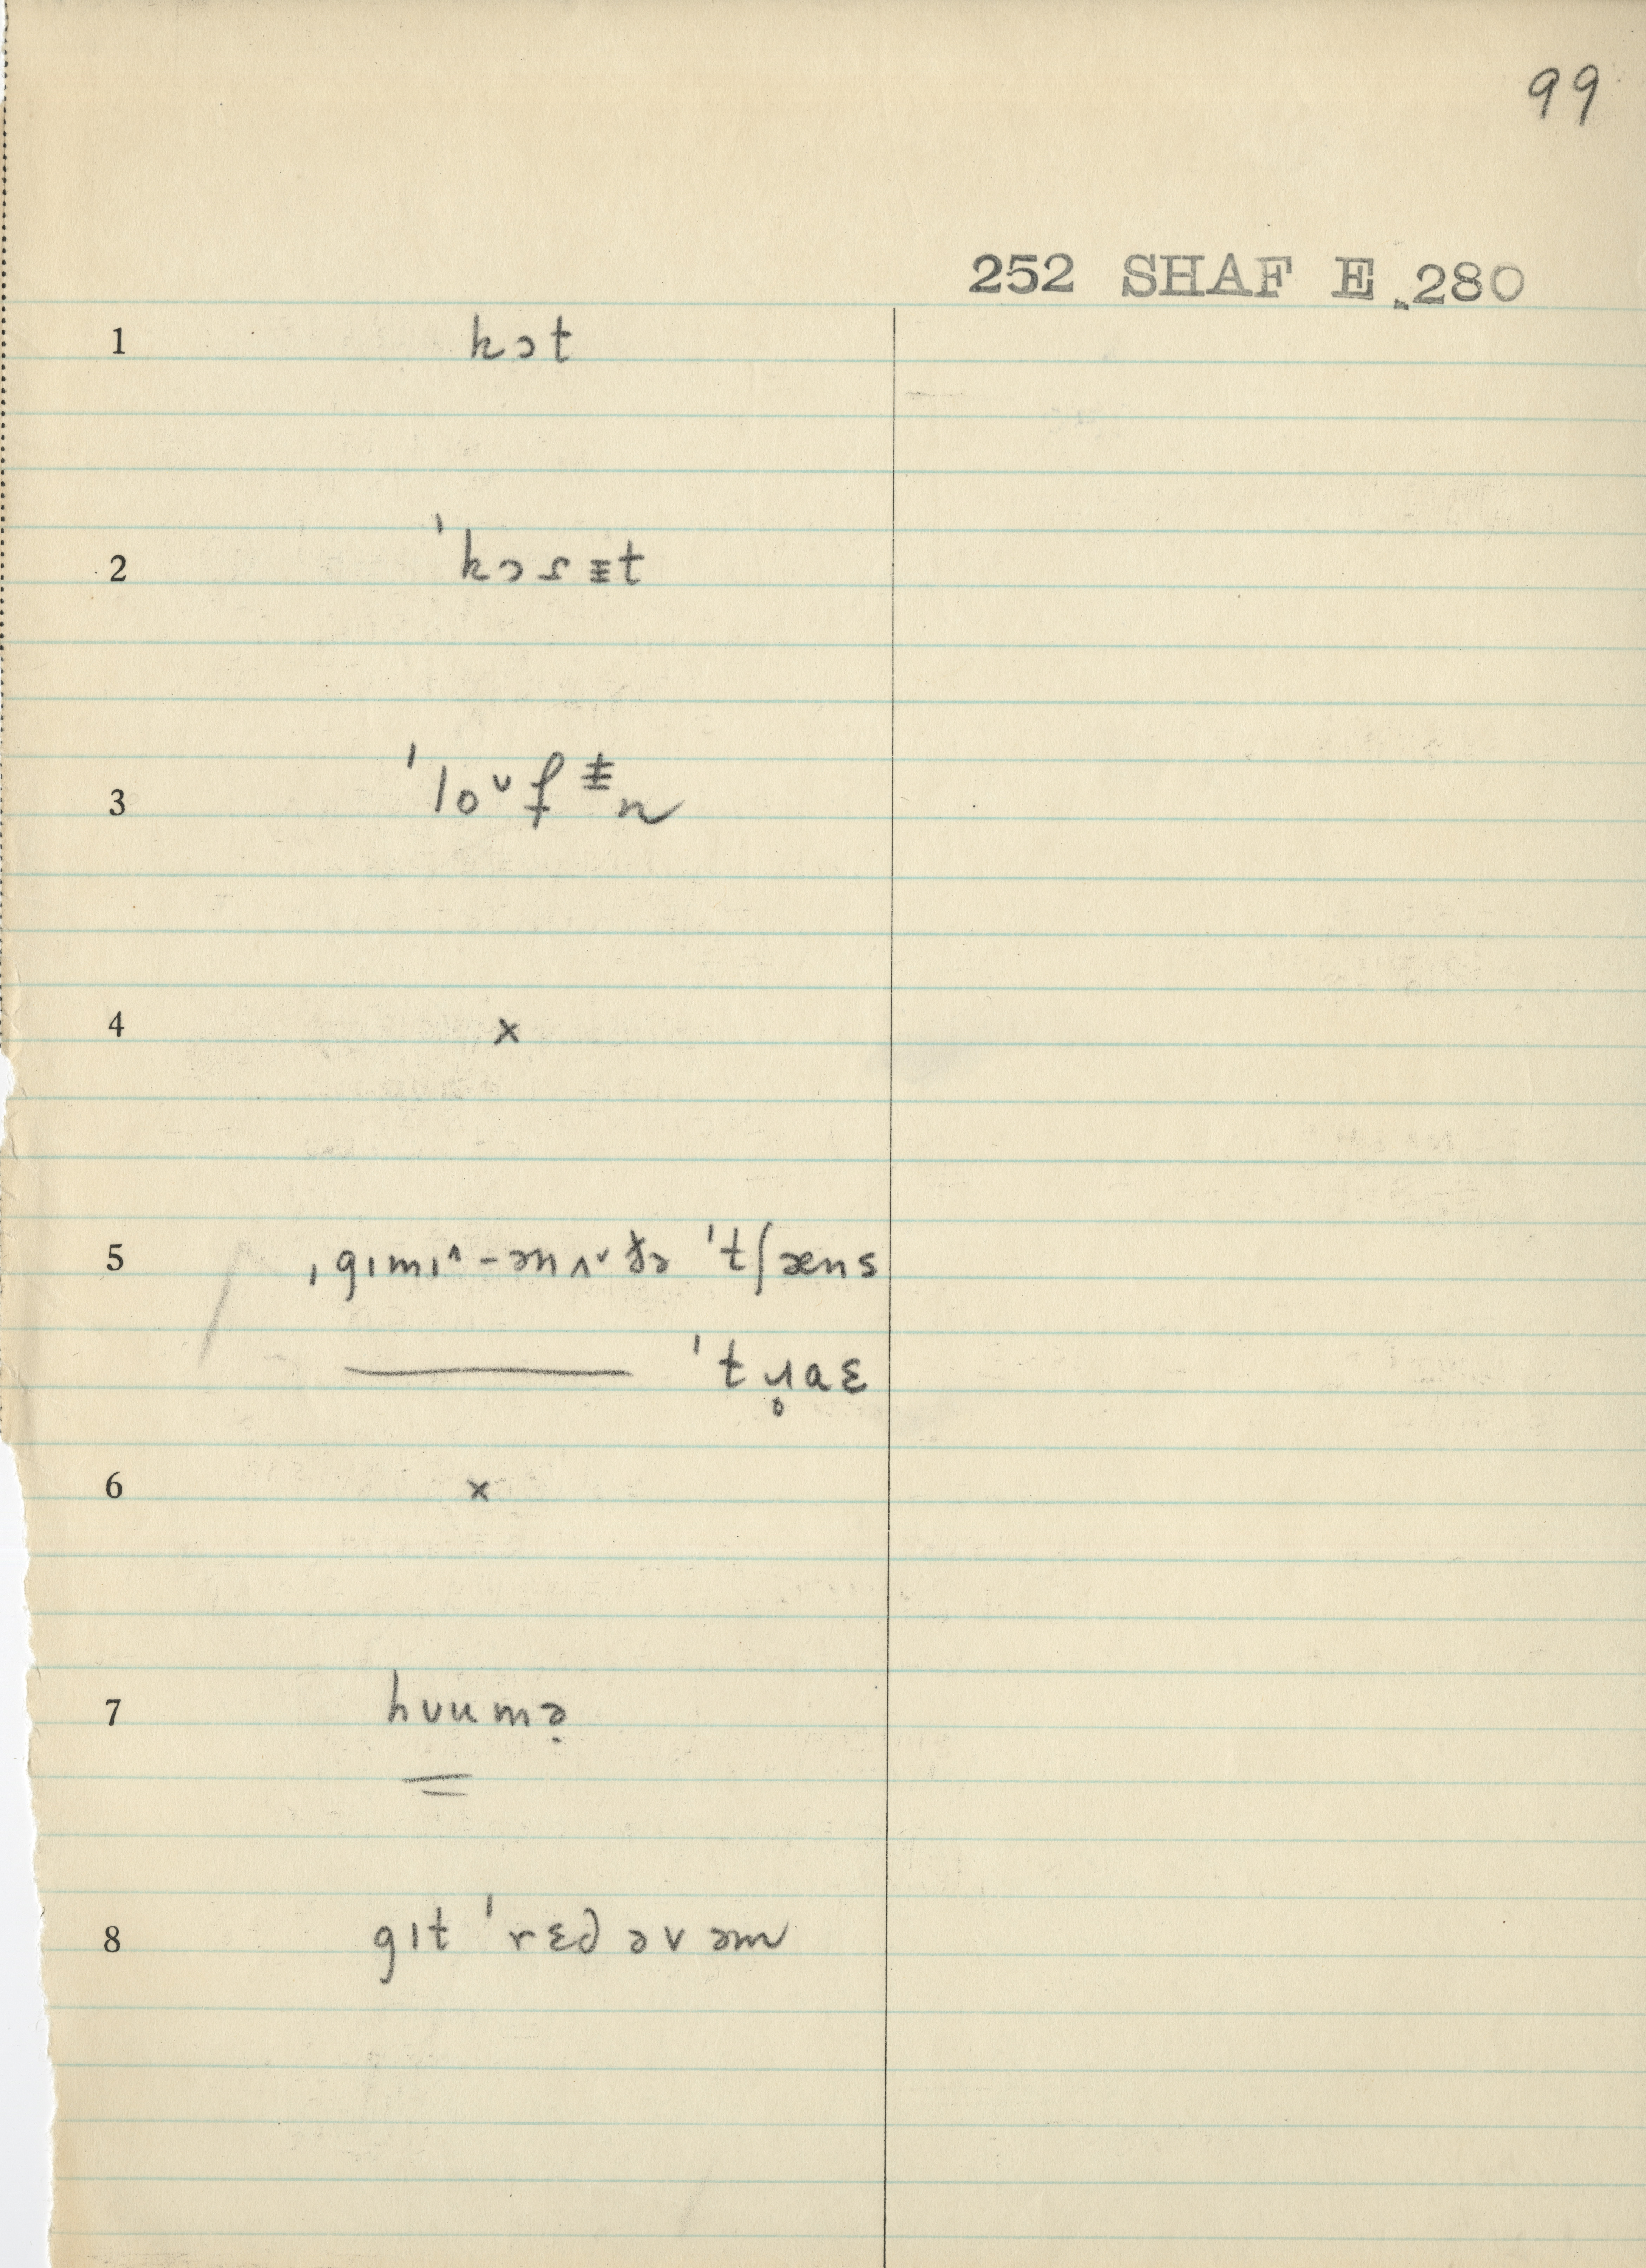 99
252 SHAF E.280
1 kɔt
2 ˈkɔrɪ̵t
3 ˈloᵛfɪ̵n
4 x
5 ˌgɪmɪ^-ənʌᵛðə ˈtʃæns
ˈtɹ̥aɛ
6 x
7 hʊumə̣
8 gɪt ˈrɛd əv əm